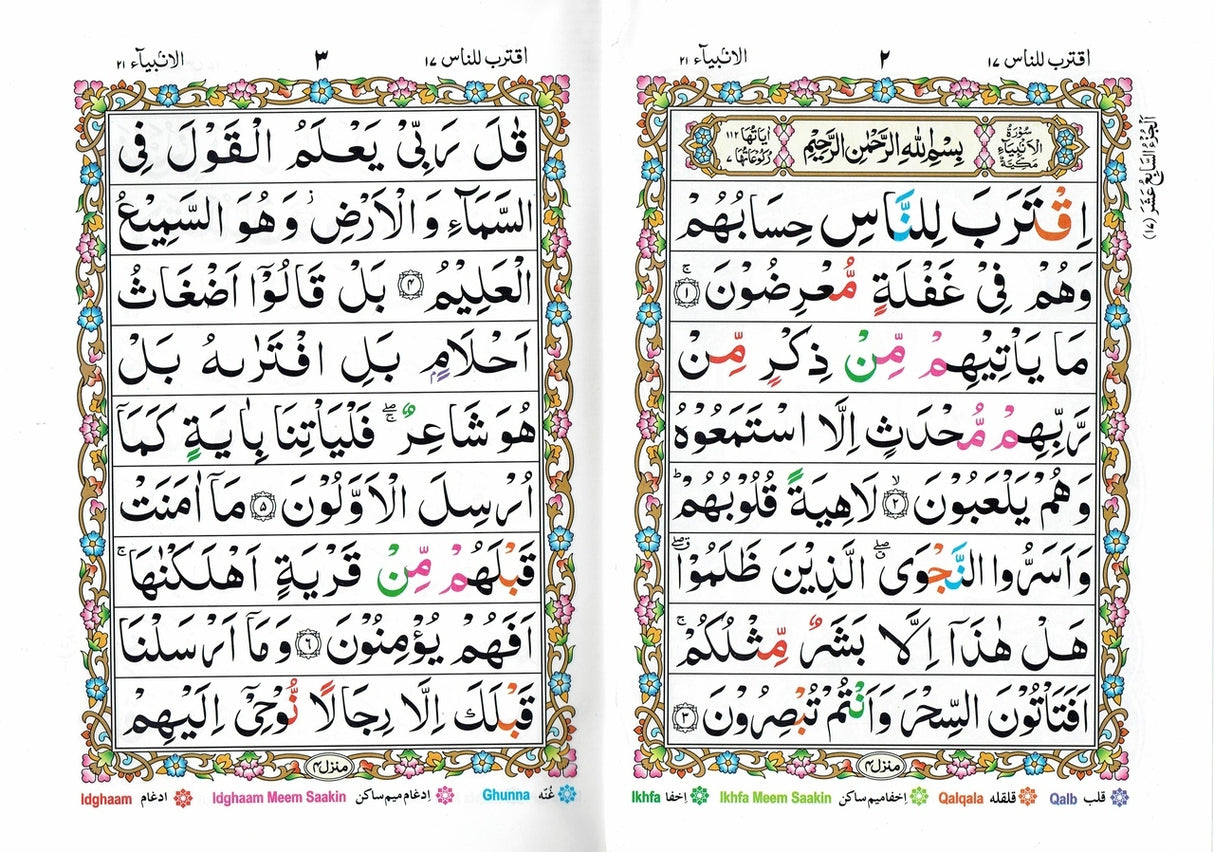 اقترب للناس ١٧
٢
الانبيآء ٢١
اَلْجُزْءُ السَّابِعُ عَشَرَ (١٧)
سُوْرَةُ الْاَنْۢبِيَآءِ مَكِّيَّةٌ
بِسْمِ اللّٰهِ الرَّحْمٰنِ الرَّحِيْمِ
اٰيَاتُهَا ١١٢
رُكُوْعَاتُهَا ٧
اِقْتَرَبَ لِلنَّاسِ حِسَابُهُمْ
وَهُمْ فِىْ غَفْلَةٍ مُّعْرِضُوْنَ ۚ ﴿١﴾
مَا يَاْتِيْهِمْ مِّنْ ذِكْرٍ مِّنْ
رَّبِّهِمْ مُّحْدَثٍ اِلَّا اسْتَمَعُوْهُ
وَهُمْ يَلْعَبُوْنَ ۙ ﴿٢﴾ لَاهِيَةً قُلُوْبُهُمْ ؕ
وَاَسَرُّوا النَّجْوَى ۖ الَّذِيْنَ ظَلَمُوْا ۖ
هَلْ هٰذَاۤ اِلَّا بَشَرٌ مِّثْلُكُمْ ۚ
اَفَتَاْتُوْنَ السِّحْرَ وَاَنْتُمْ تُبْصِرُوْنَ ﴿٣﴾
منزل ٤
قلب Qalb
قلقله Qalqala
اِخفا ميم ساكن Ikhfa Meem Saakin
اِخفا Ikhfa
اقترب للناس ١٧
٣
الانبيآء ٢١
قٰلَ رَبِّىْ يَعْلَمُ الْقَوْلَ فِى
السَّمَآءِ وَالْاَرْضِ ؗ وَهُوَ السَّمِيْعُ
الْعَلِيْمُ ﴿٤﴾ بَلْ قَالُوْۤا اَضْغَاثُ
اَحْلَامٍۭ بَلِ افْتَرٰىهُ بَلْ
هُوَ شَاعِرٌ ۖۚ فَلْيَاْتِنَا بِاٰيَةٍ كَمَاۤ
اُرْسِلَ الْاَوَّلُوْنَ ﴿٥﴾ مَاۤ اٰمَنَتْ
قَبْلَهُمْ مِّنْ قَرْيَةٍ اَهْلَكْنٰهَا ۚ
اَفَهُمْ يُؤْمِنُوْنَ ﴿٦﴾ وَمَاۤ اَرْسَلْنَا
قَبْلَكَ اِلَّا رِجَالًا نُّوْحِىْۤ اِلَيْهِمْ
منزل ٤
غُنّه Ghunna
اِدغام ميم ساكن Idghaam Meem Saakin
ادغام Idghaam